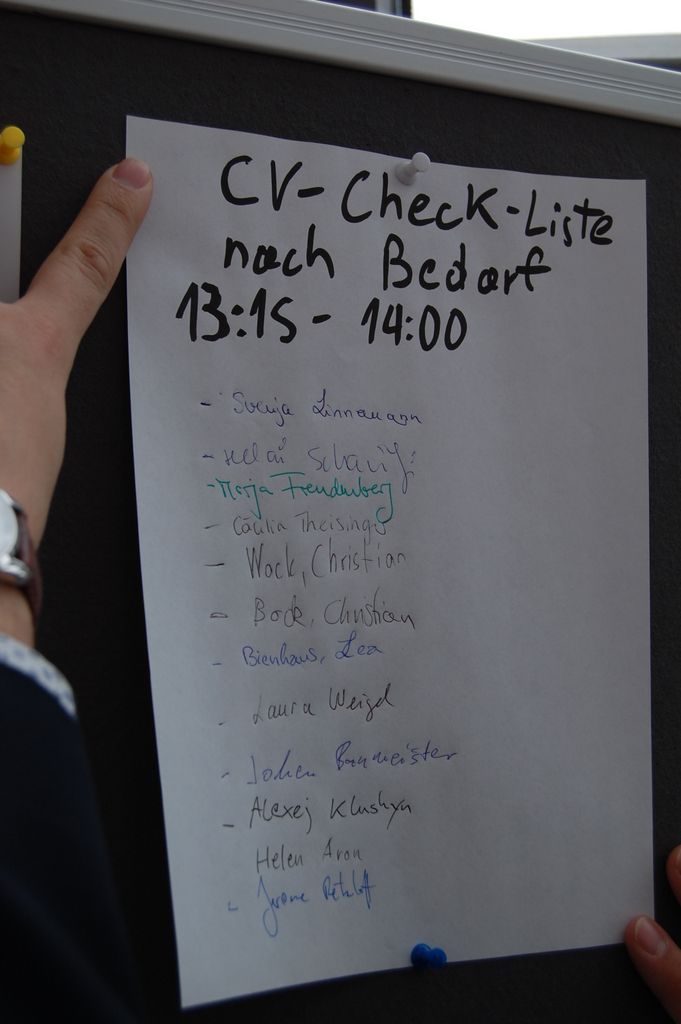 CV-Check-Liste
nach Bedarf
13:15 - 14:00
- Svenja Linnemann
-
- Freudenberg
- Cäcilia Theisinger
- Wock, Christian
- Bock, Christian
- Bienhaus, Lea
- Laura Weigel
- Jochen Baumeister
- Alexej Klushyn
Helen Aron
- Jerome Retzlaff